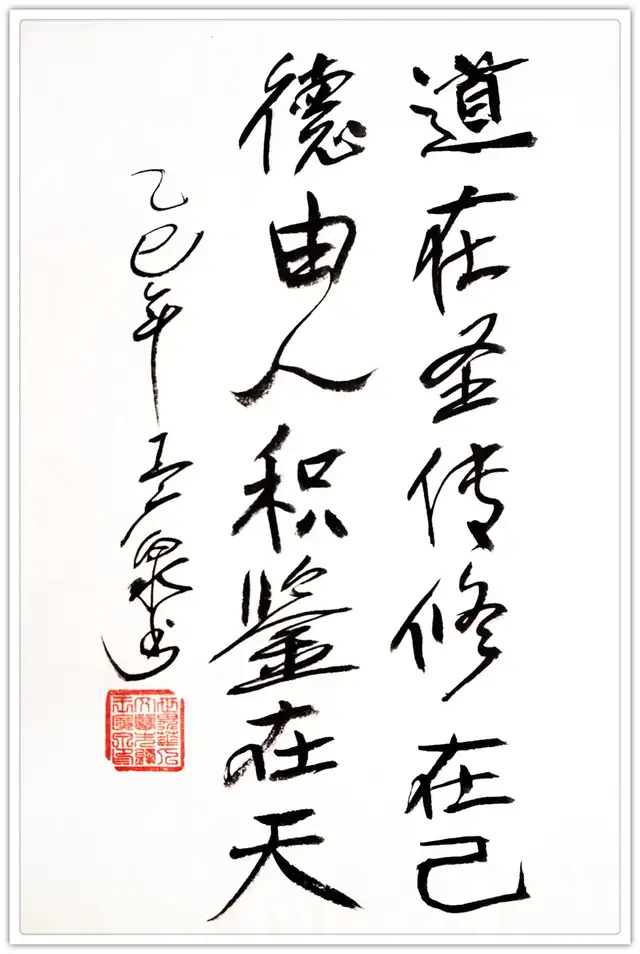 道在圣传修在己
德由人积鉴在天
乙巳年 泉书